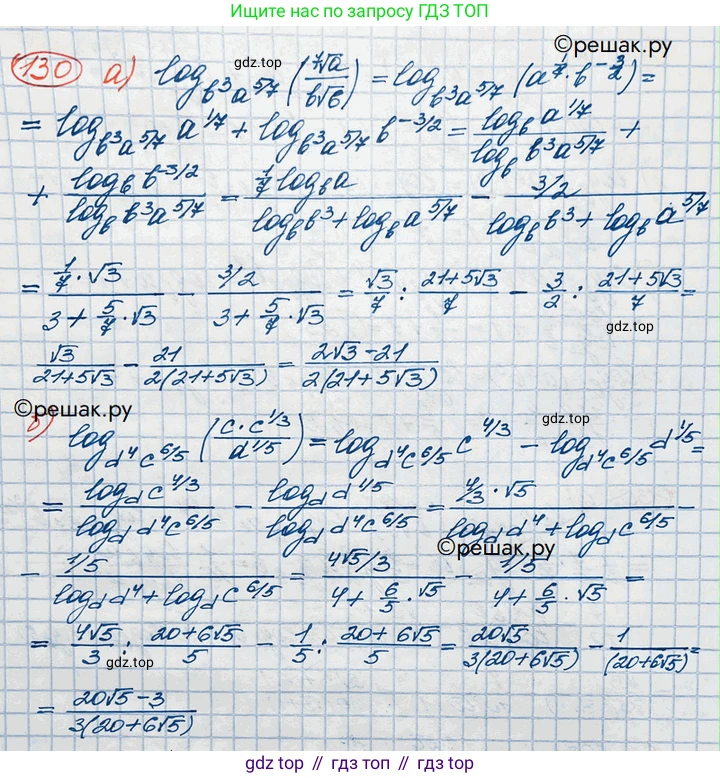 Ищите нас по запросу ГДЗ ТОП
©решак.ру
gdz.top
130 а) log_{b³a^{5/7}} (⁷√a / b√b) = log_{b³a^{5/7}} (a^{1/7} · b^{-3/2}) =
= log_{b³a^{5/7}} a^{1/7} + log_{b³a^{5/7}} b^{-3/2} = log_b a^{1/7} / log_b b³a^{5/7} +
+ log_b b^{-3/2} / log_b b³a^{5/7} = 1/7 log_b a / (log_b b³ + log_b a^{5/7}) - 3/2 / (log_b b³ + log_b a^{5/7})
= 1/7 · √3 / (3 + 5/7 · √3) - 3/2 / (3 + 5/7 · √3) = √3/7 : (21+5√3)/7 - 3/2 : (21+5√3)/7 =
gdz.top
√3 / (21+5√3) - 21 / 2(21+5√3) = (2√3 - 21) / 2(21+5√3)
©решак.ру
gdz.top
б) log_{d⁴c^{6/5}} (c · c^{1/3} / d^{1/5}) = log_{d⁴c^{6/5}} c^{4/3} - log_{d⁴c^{6/5}} d^{1/5} =
gdz.top
= log_d c^{4/3} / log_d d⁴c^{6/5} - log_d d^{1/5} / log_d d⁴c^{6/5} = 4/3 · √5 / (log_d d⁴ + log_d c^{6/5}) -
©решак.ру
- 1/5 / (log_d d⁴ + log_d c^{6/5}) = 4√5/3 / (4 + 6/5 · √5) - 1/5 / (4 + 6/5 · √5) =
= 4√5/3 : (20+6√5)/5 - 1/5 : (20+6√5)/5 = 20√5 / 3(20+6√5) - 1 / (20+6√5) =
gdz.top
gdz.top
= (20√5 - 3) / 3(20+6√5)
gdz.top // gdz.top // gdz.top